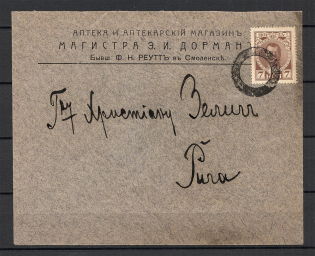 АПТЕКА и АПТЕКАРСКІЙ МАГАЗИНЪ
МАГИСТРА Э. И. ДОРМАН
Бывш. Ф. Н. РЕУТТЪ въ Смоленскѣ.
7 7
Христіану
Рига